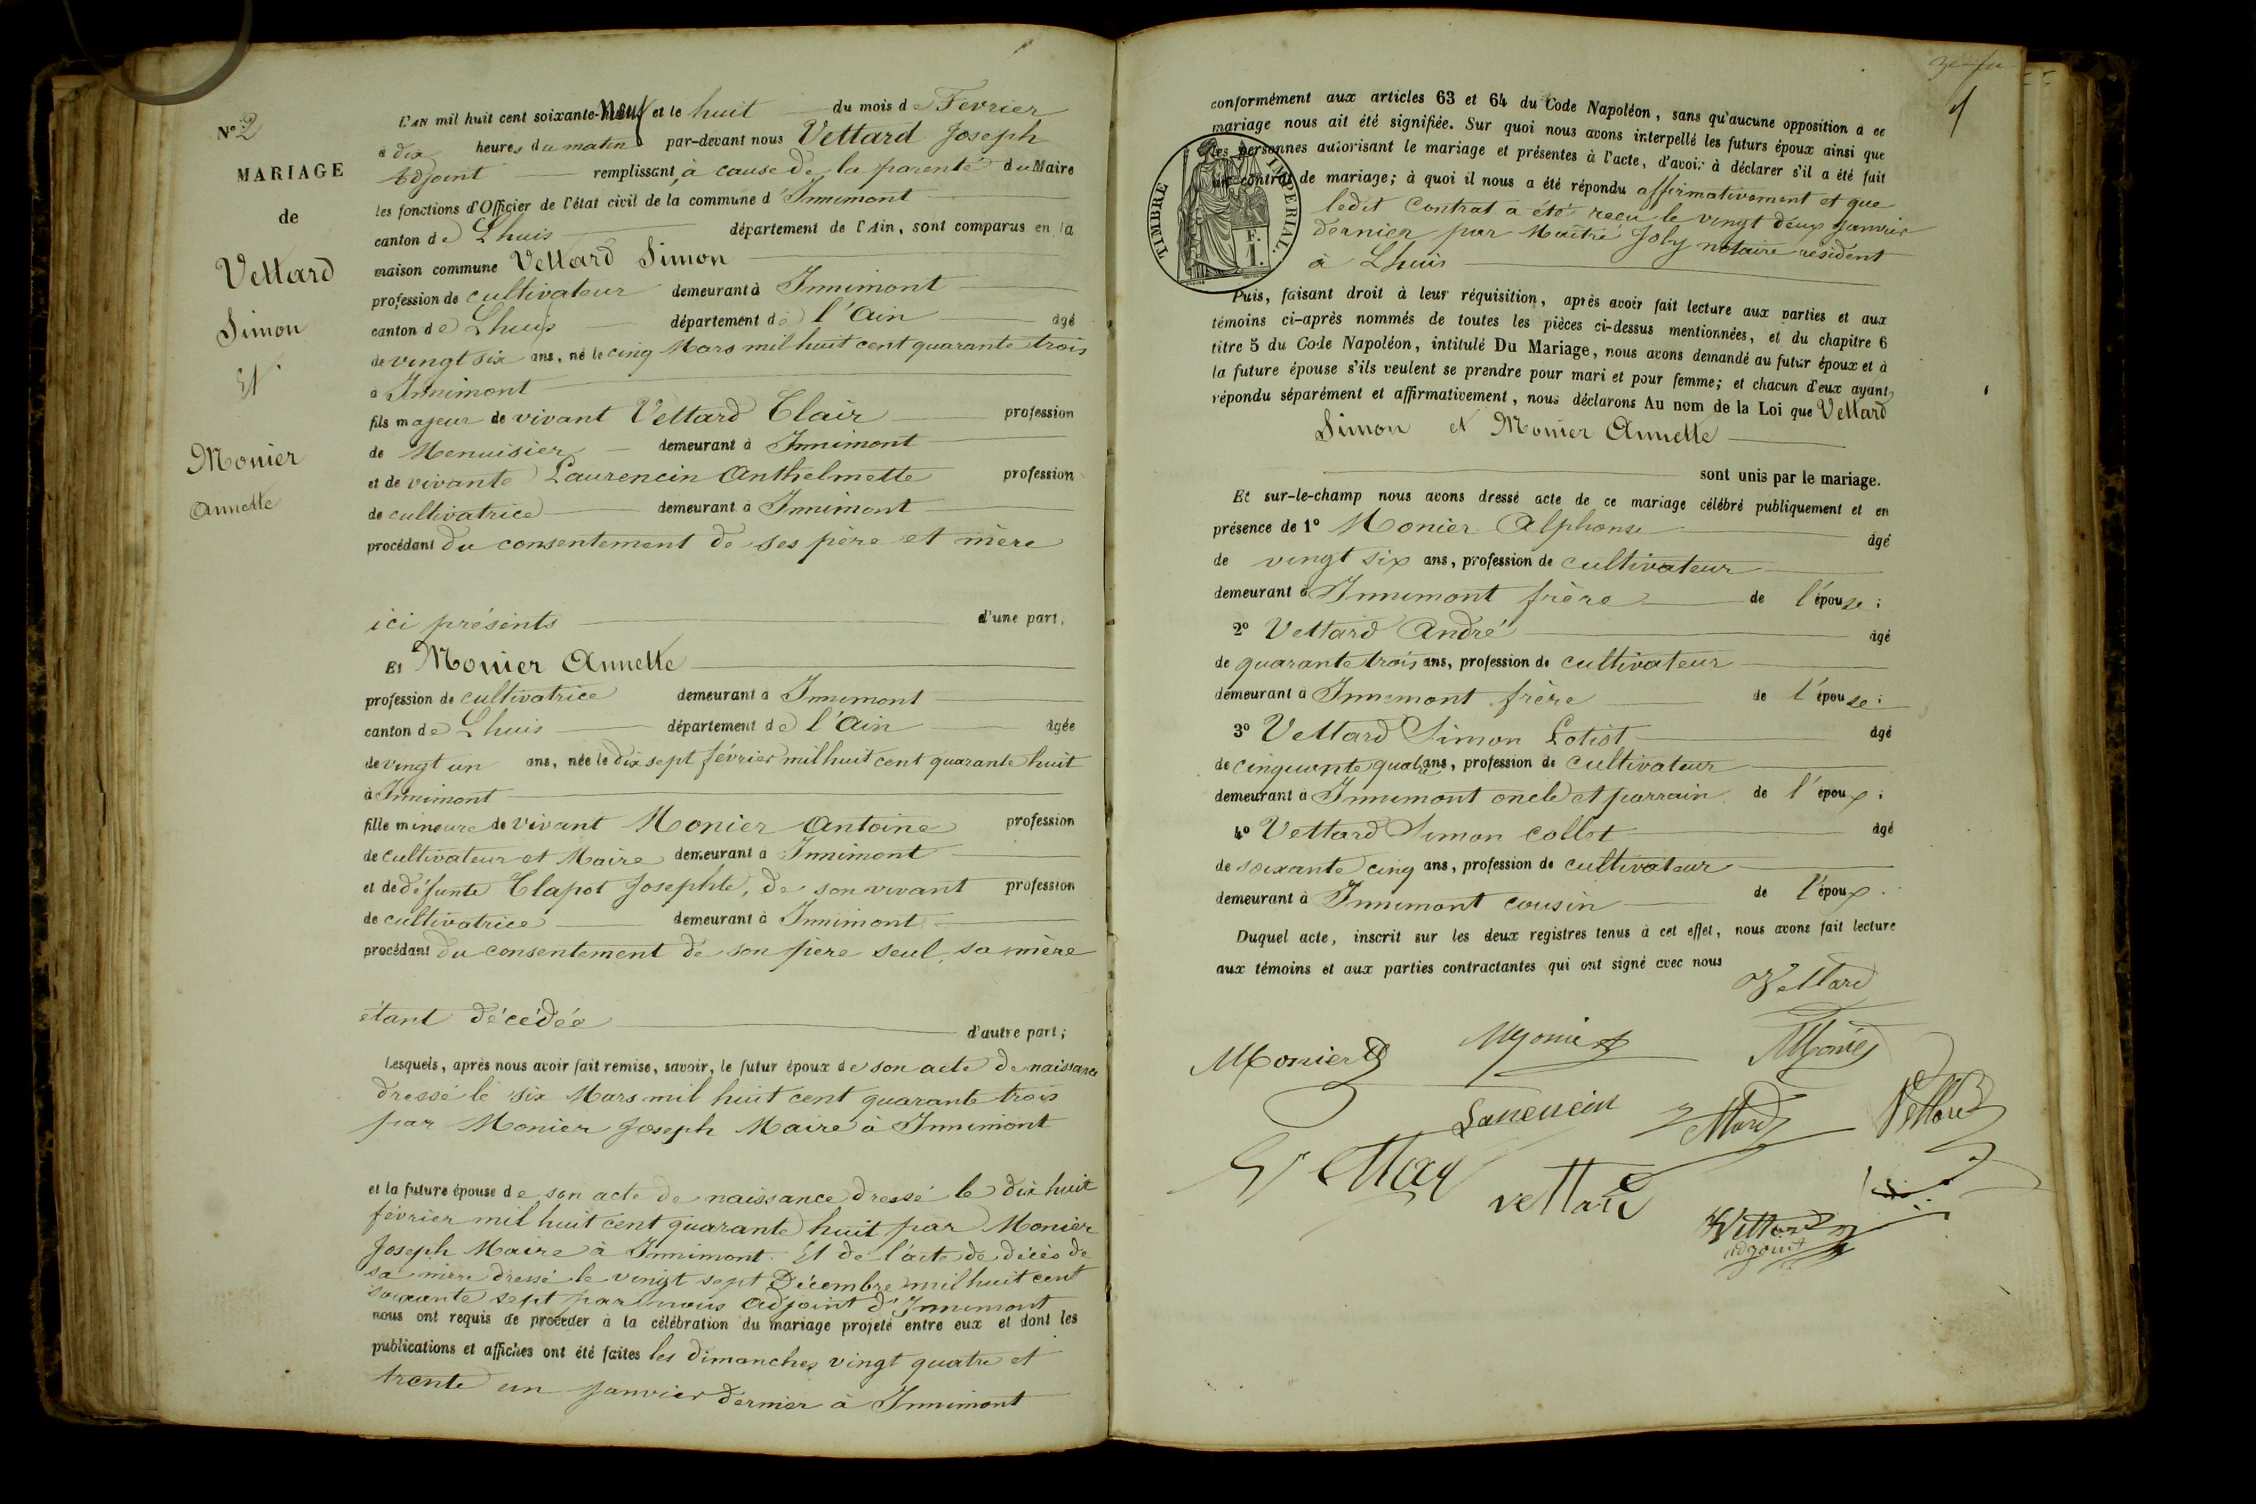 N° 2
MARIAGE
de
Vettard
Simon
Et
Monier
Annette
L'AN mil huit cent soixante-neuf et le huit du mois de Février
à dix heures du matin par-devant nous Vettard Joseph
Adjoint remplissant, à cause de la parenté du Maire
les fonctions d'Officier de l'état civil de la commune d'Innimont
canton de Lhuis département de l'Ain, sont comparus en la
maison commune Vettard Simon
profession de cultivateur demeurant à Innimont
canton de Lhuis département de l'Ain âgé
de vingt six ans, né le cinq Mars mil huit cent quarante trois
à Innimont
fils majeur de vivant Vettard Clair profession
de Menuisier demeurant à Innimont
et de vivante Laurencin Anthelmette profession
de cultivatrice demeurant à Innimont
procédant du consentement de ses père et mère
ici présents d'une part,
Et Monier Annette
profession de cultivatrice demeurant à Innimont
canton de Lhuis département de l'Ain âgée
de vingt un ans, née le dix sept février mil huit cent quarante huit
à Innimont
fille mineure de vivant Monier Antoine profession
de cultivateur et Maire demeurant à Innimont
et de défunte Clapot Josephte, de son vivant profession
de cultivatrice demeurant à Innimont
procédant du consentement de son père seul, sa mère
étant décédée d'autre part;
Lesquels, après nous avoir fait remise, savoir, le futur époux de son acte de naissance
dressé le six Mars mil huit cent quarante trois
par Monier Joseph Maire à Innimont
et la future épouse de son acte de naissance dressé le dix huit
février mil huit cent quarante huit par Monier
Joseph Maire à Innimont. Et de l'acte de décès de
sa mère dressé le vingt sept Décembre mil huit cent
soixante sept par nous adjoint d'Innimont
nous ont requis de procéder à la célébration du mariage projeté entre eux et dont les
publications et affiches ont été faites les dimanches vingt quatre et
trente un janvier dernier à Innimont
conformément aux articles 63 et 64 du Code Napoléon, sans qu'aucune opposition à ce
mariage nous ait été signifiée. Sur quoi nous avons interpellé les futurs époux ainsi que
les personnes autorisant le mariage et présentes à l'acte, d'avoir à déclarer s'il a été fait
un contrat de mariage; à quoi il nous a été répondu affirmativement et que
ledit Contrat a été reçu le vingt deux janvier
dernier par Maître Joly notaire résident
à Lhuis
TIMBRE IMPÉRIAL.
F.
1.
Puis, faisant droit à leur réquisition, après avoir fait lecture aux parties et aux
témoins ci-après nommés de toutes les pièces ci-dessus mentionnées, et du chapitre 6
titre 5 du Code Napoléon, intitulé Du Mariage, nous avons demandé au futur époux et à
la future épouse s'ils veulent se prendre pour mari et pour femme; et chacun d'eux ayant
répondu séparément et affirmativement, nous déclarons Au nom de la Loi que Vettard
Simon et Monier Annette
sont unis par le mariage.
Et sur-le-champ nous avons dressé acte de ce mariage célébré publiquement et en
présence de 1° Monier Alphonse âgé
de vingt six ans, profession de cultivateur
demeurant à Innimont frère de l'épouse;
2° Vettard André âgé
de quarante trois ans, profession de cultivateur
demeurant à Innimont frère de l'épouse;
3° Vettard Simon Lotist âgé
de cinquante quatre ans, profession de cultivateur
demeurant à Innimont oncle et parrain de l'époux;
4° Vettard Simon collet âgé
de soixante cinq ans, profession de cultivateur
demeurant à Innimont cousin de l'époux.
Duquel acte, inscrit sur les deux registres tenus à cet effet, nous avons fait lecture
aux témoins et aux parties contractantes qui ont signé avec nous
Vettard
Monier Monier Monier
Laurencin Vettard Vettard
Vettard
Vettard
adjoint